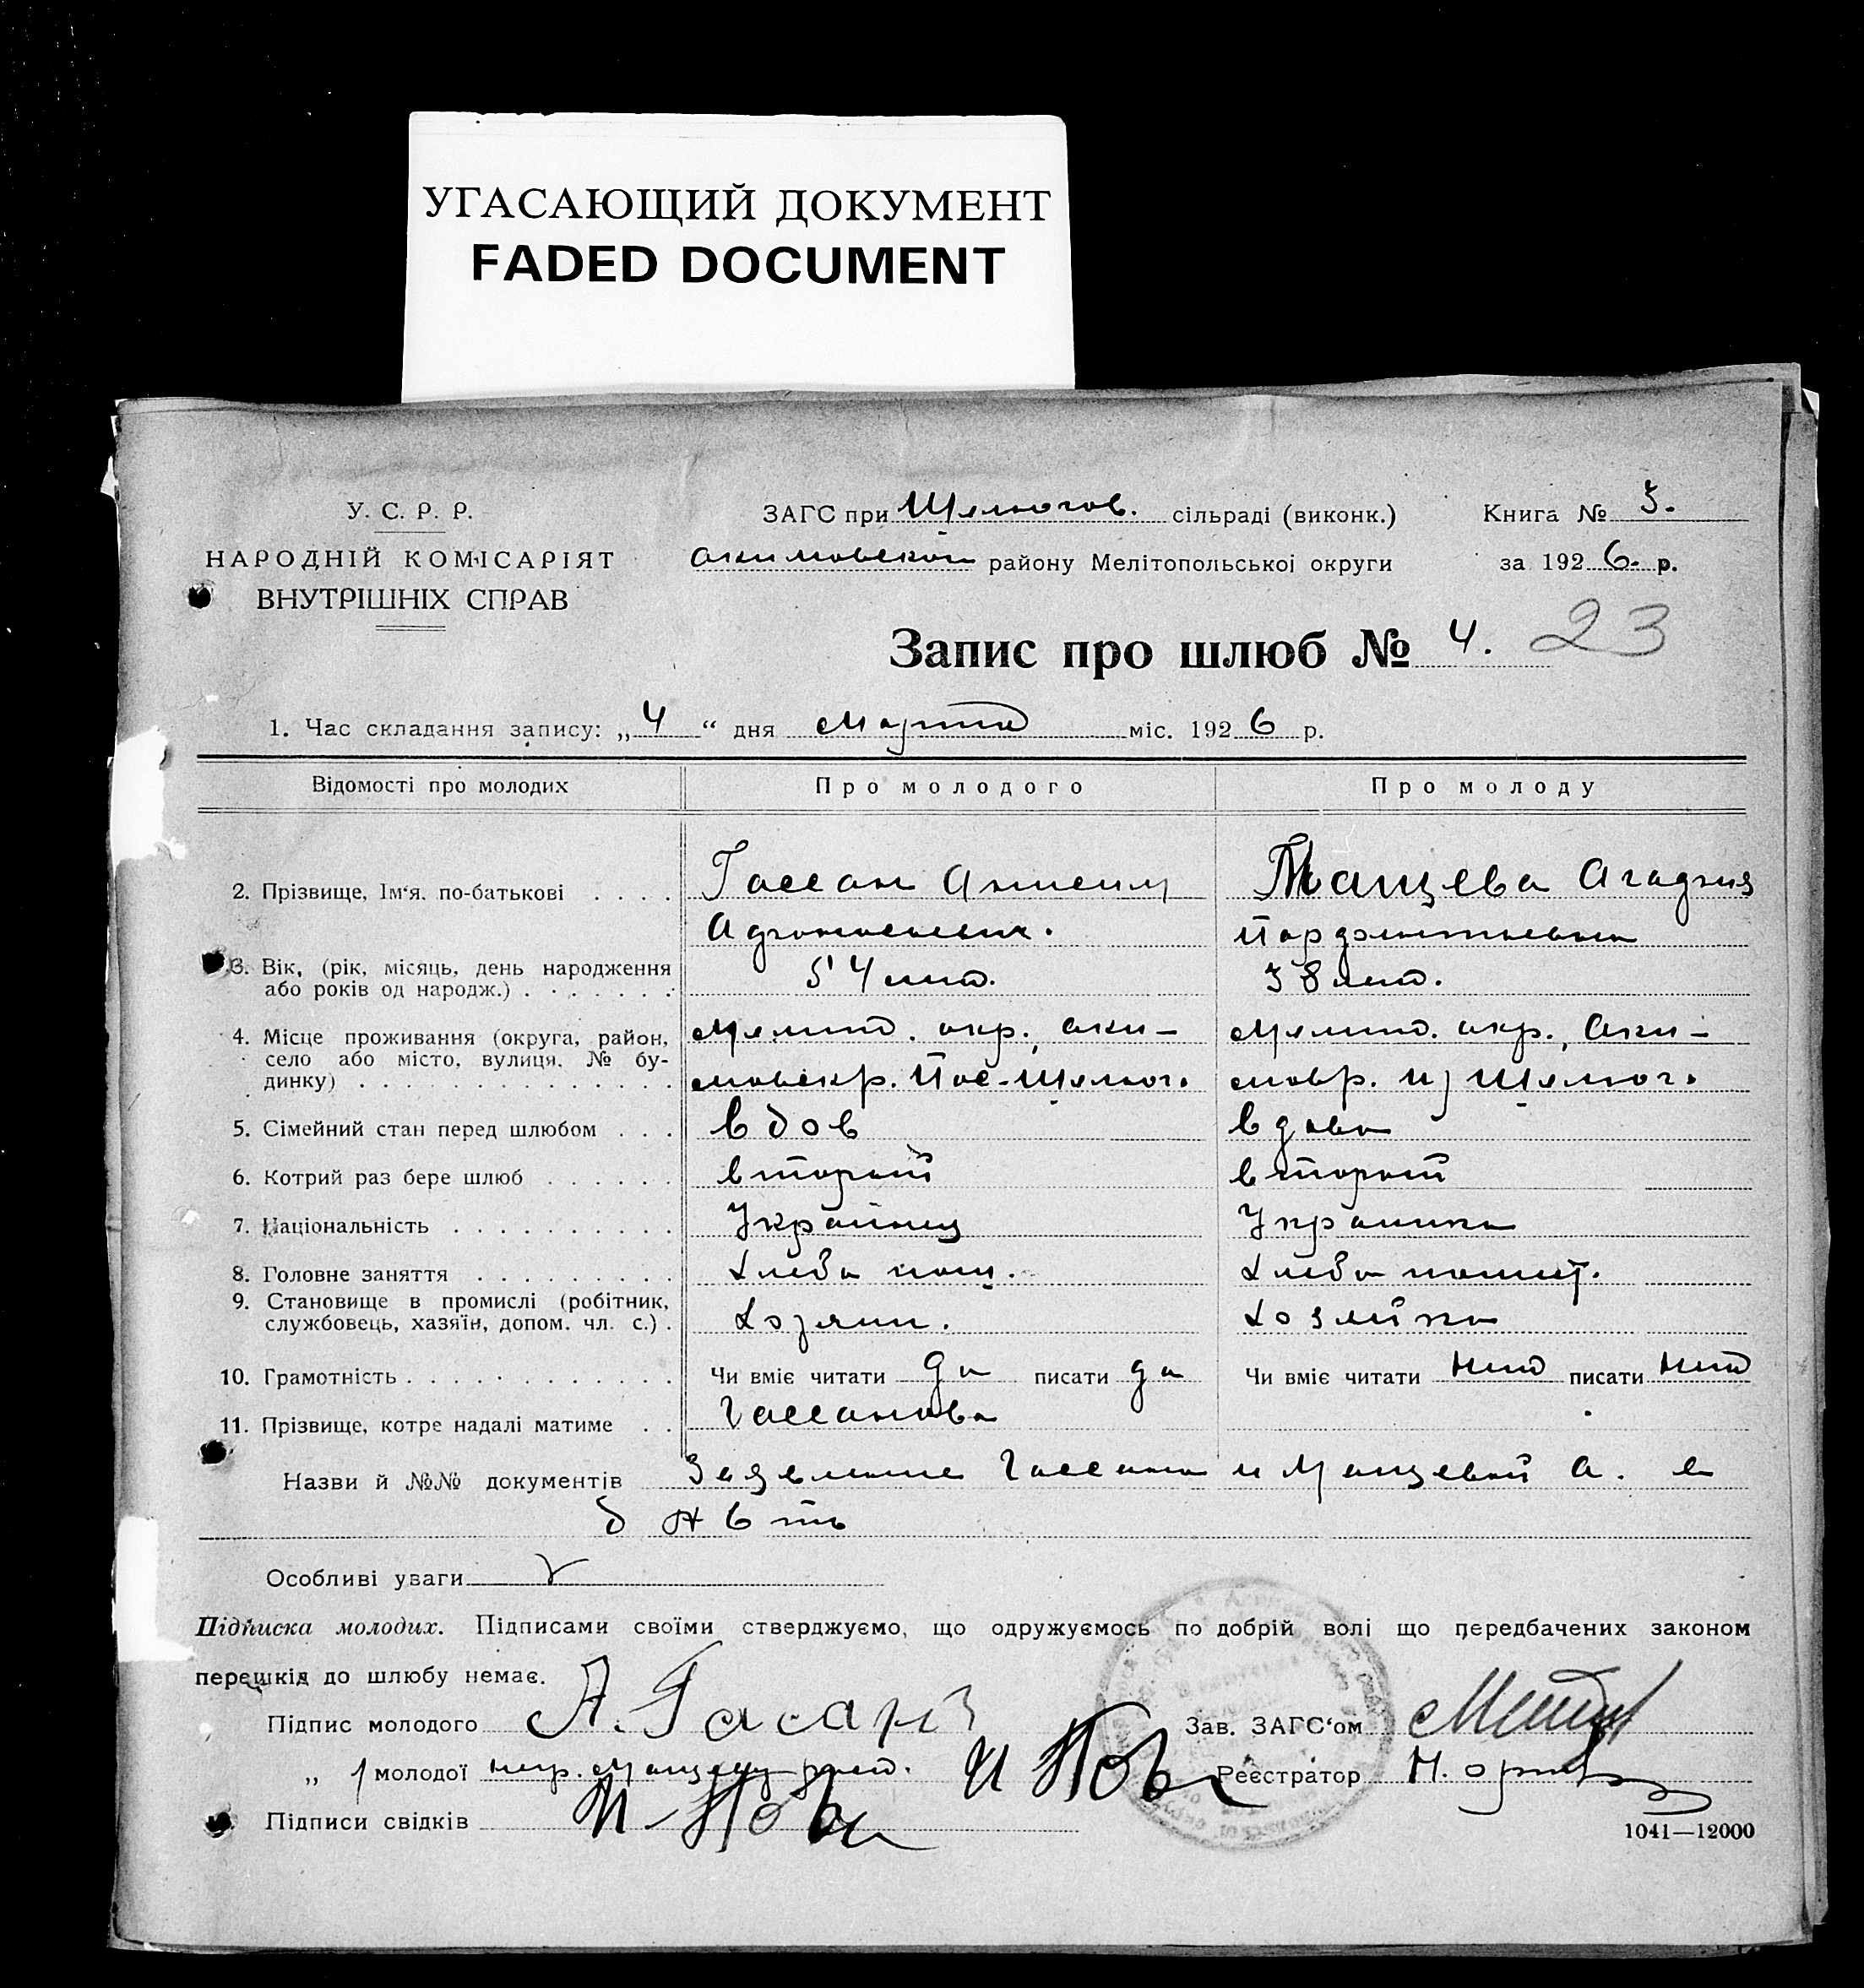 УГАСАЮЩИЙ ДОКУМЕНТ
FADED DOCUMENT
У. С. Р. Р.
НАРОДНІЙ КОМІСАРІЯТ
ВНУТРІШНІХ СПРАВ
ЗАГС при Шелюгов. сільраді (виконк.)
Акимовской району Мелітопольської округи
Книга № 3.
за 1926. р.
Запис про шлюб № 4. 23
1. Час складання запису: „4“ дня Марта міс. 1926 р.
Відомості про молодих Про молодого Про молоду
2. Прізвище, Ім'я, по-батькові . . . . Гассан Анисим Манцева Агафия
3. Вік, (рік, місяць, день народження або років од народж.) . . . . . . 54 лет. 38 лет.
4. Місце проживання (округа, район, село або місто, вулиця, № будинку) . . . . . . . . . . . . . Мелит. окр., Аки- Мелит. окр., Аки-
мовск р. Пос-Шелюг. мов р. Шелюг.
5. Сімейний стан перед шлюбом . . . вдов вдова
6. Котрий раз бере шлюб . . . . . . второй второй
7. Національність . . . . . . . . . . Украинец Украинка
8. Головне заняття . . . . . . . . . Хлебопаш.
9. Становище в промислі (робітник, службовець, хазяїн, допом. чл. с.) . Хозяин. Хозяйка
10. Грамотність . . . . . . . . . . . . Чи вміє читати да писати да Чи вміє читати нет писати нет
11. Прізвище, котре надалі матиме . . Гассанова
Назви й №№ документів Заявление Гассана и Манцевой А.
Особливі уваги
Підписка молодих. Підписами своїми стверджуємо, що одружуємось по добрій волі що передбачених законом
перешкід до шлюбу немає.
Підпис молодого А. Гасан Зав. ЗАГС'ом
„ молодої негр. Реєстратор
Підписи свідків
1041—12000